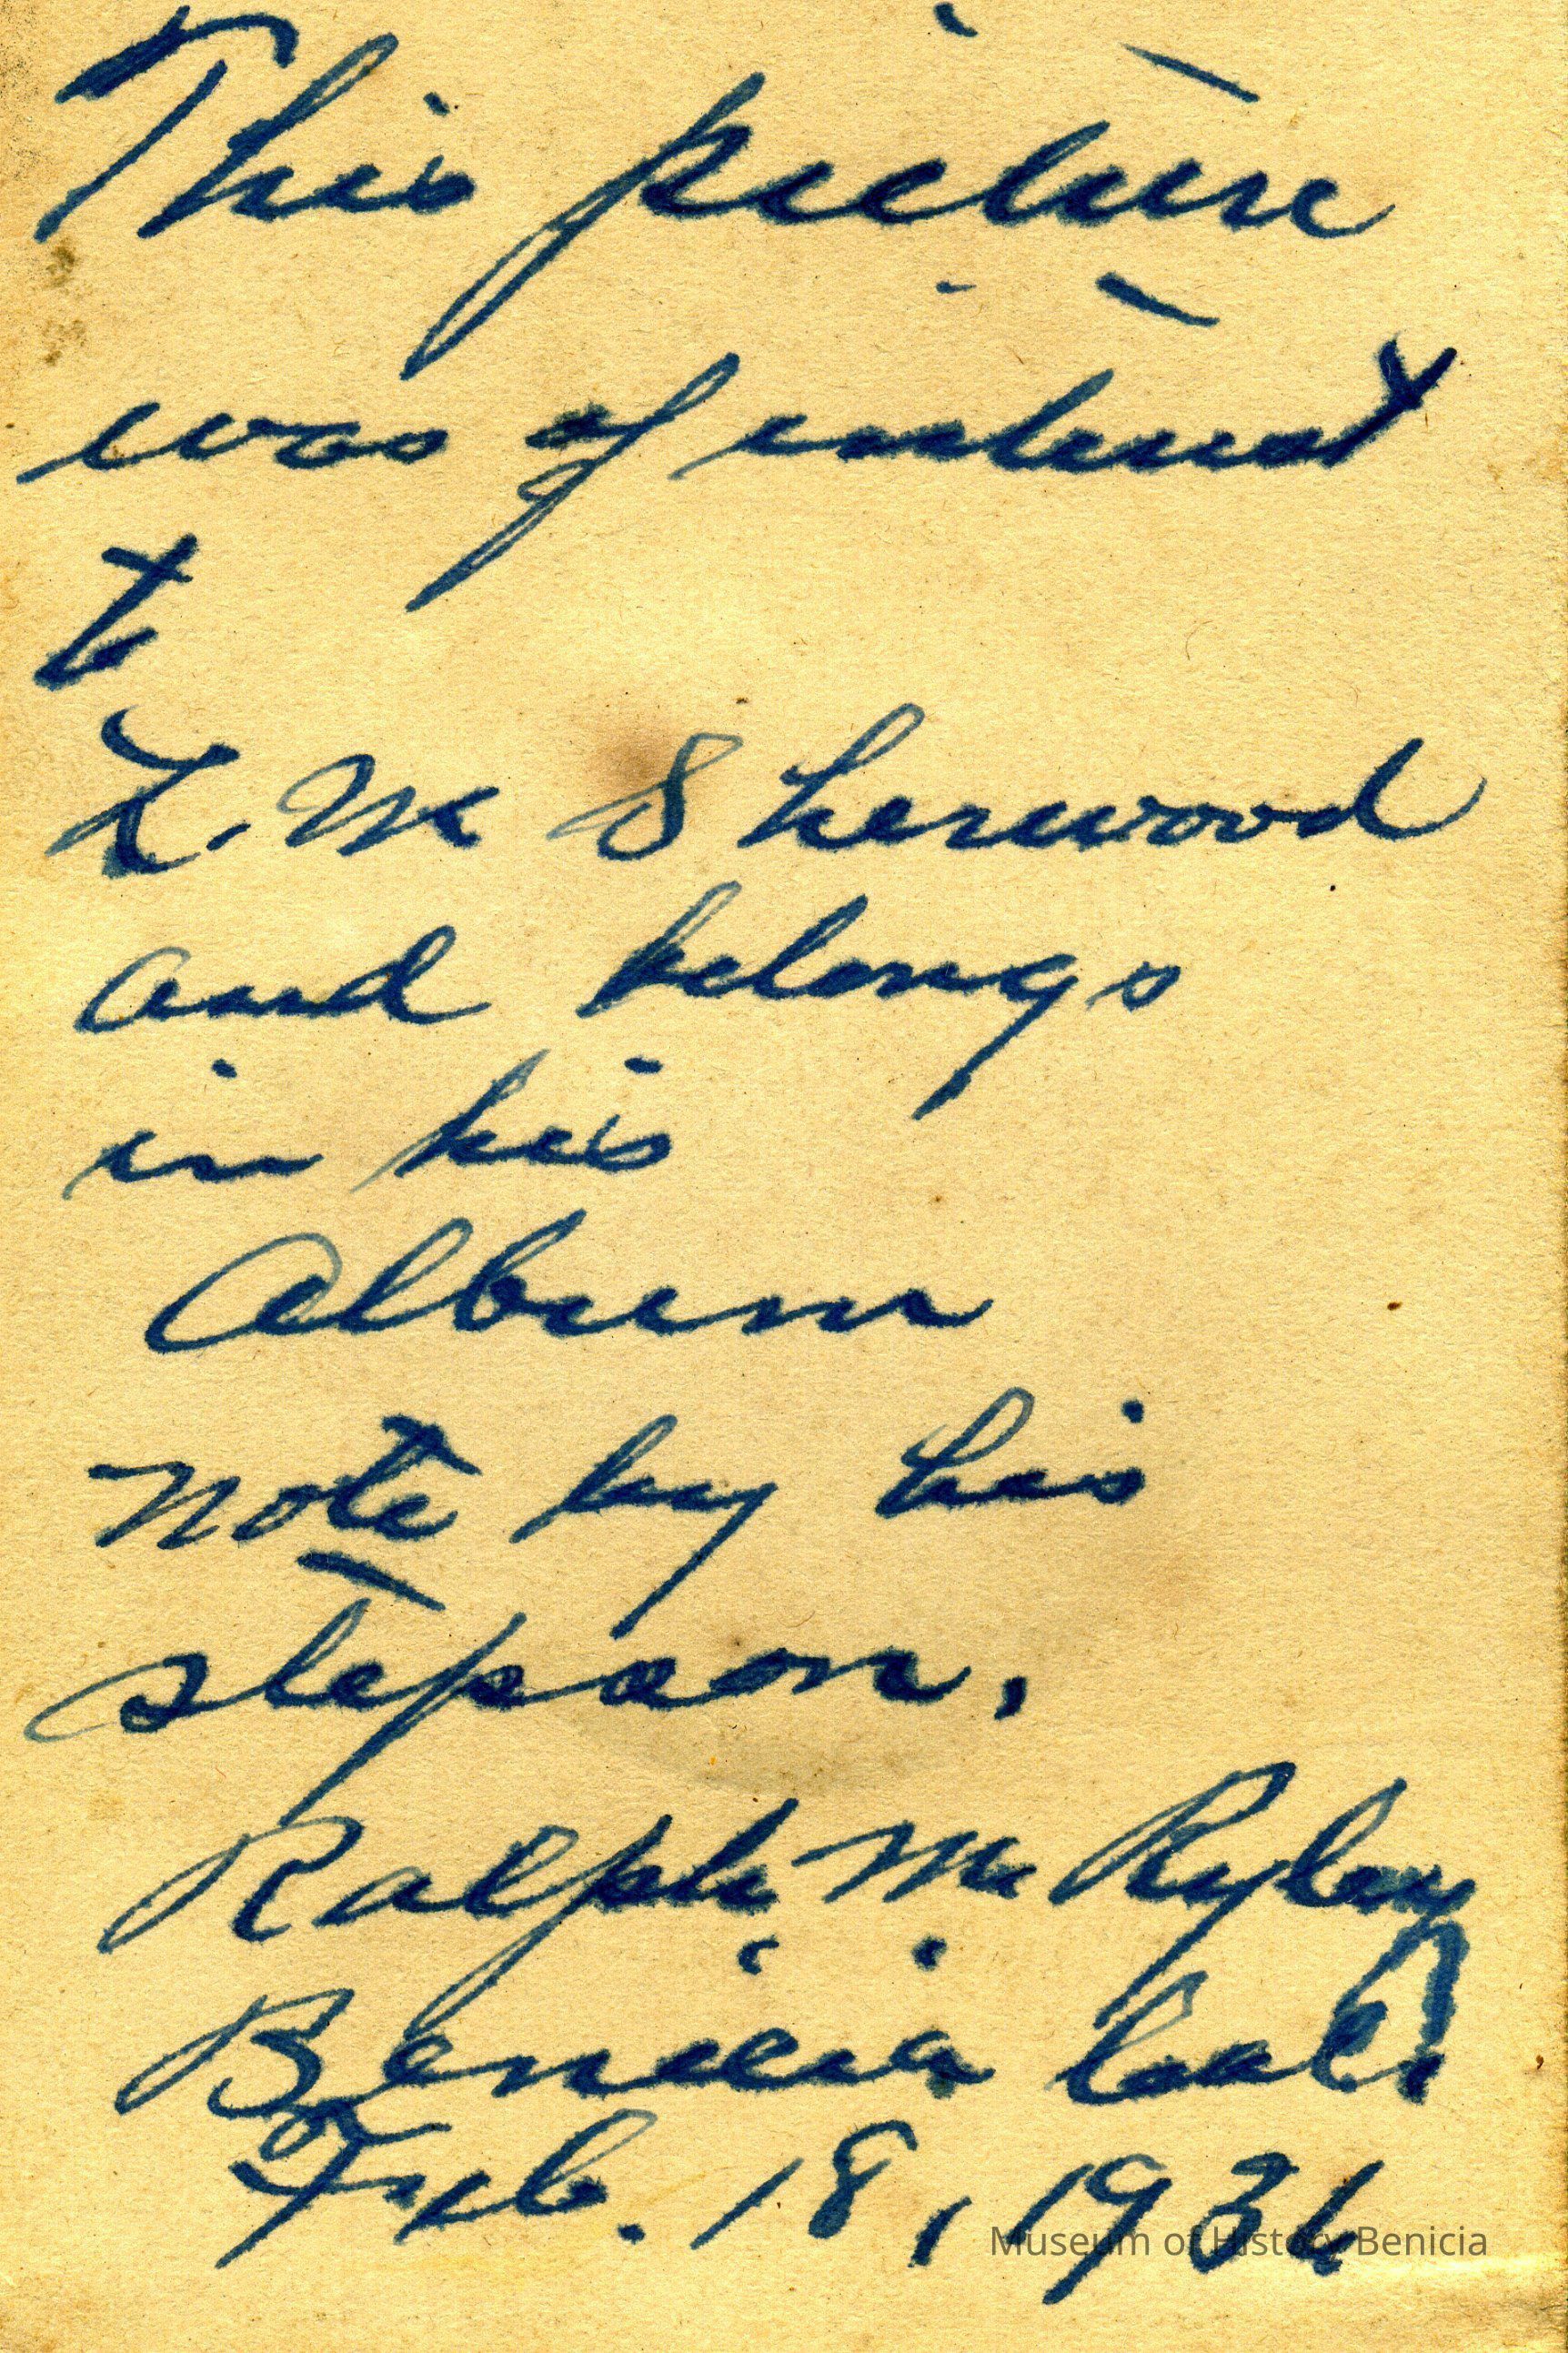 This picture
was of interest
to
L. M Sherwood
and belongs
in his
Album
Note by his
stepson,
Ralph M Ryley
Benicia Cal.
Feb. 18, 1936
Museum of History Benicia